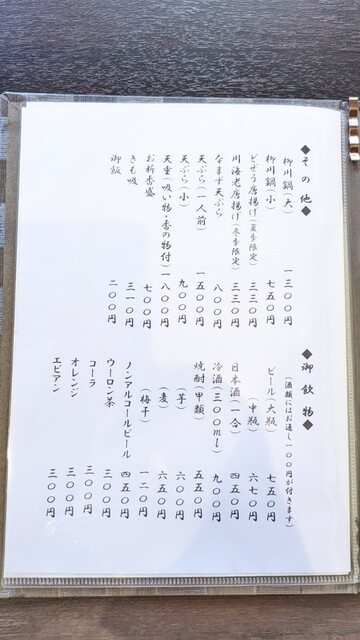 ◆その他◆
柳川鍋(大) 一三〇〇円
柳川鍋(小) 七五〇円
どぜう唐揚げ(夏季限定) 三三〇円
川海老唐揚げ(冬季限定) 三三〇円
なまず天ぷら 八〇〇円
天ぷら(一人前) 一五〇〇円
天ぷら(小) 九〇〇円
天重(吸い物・香の物付) 一八〇〇円
お新香盛 七〇〇円
きも吸 三一〇円
御飯 二〇〇円
◆御飲物◆
(酒類にはお通し一〇〇円が付きます)
ビール(大瓶) 七五〇円
(中瓶) 六七〇円
日本酒(一合) 四五〇円
冷酒(三〇〇ml) 九〇〇円
焼酎(甲類) 五五〇円
(芋) 六〇〇円
(麦) 六五〇円
(梅干) 一二〇円
ノンアルコールビール 四五〇円
ウーロン茶 三〇〇円
コーラ 三〇〇円
オレンジ 三〇〇円
エビアン 三〇〇円